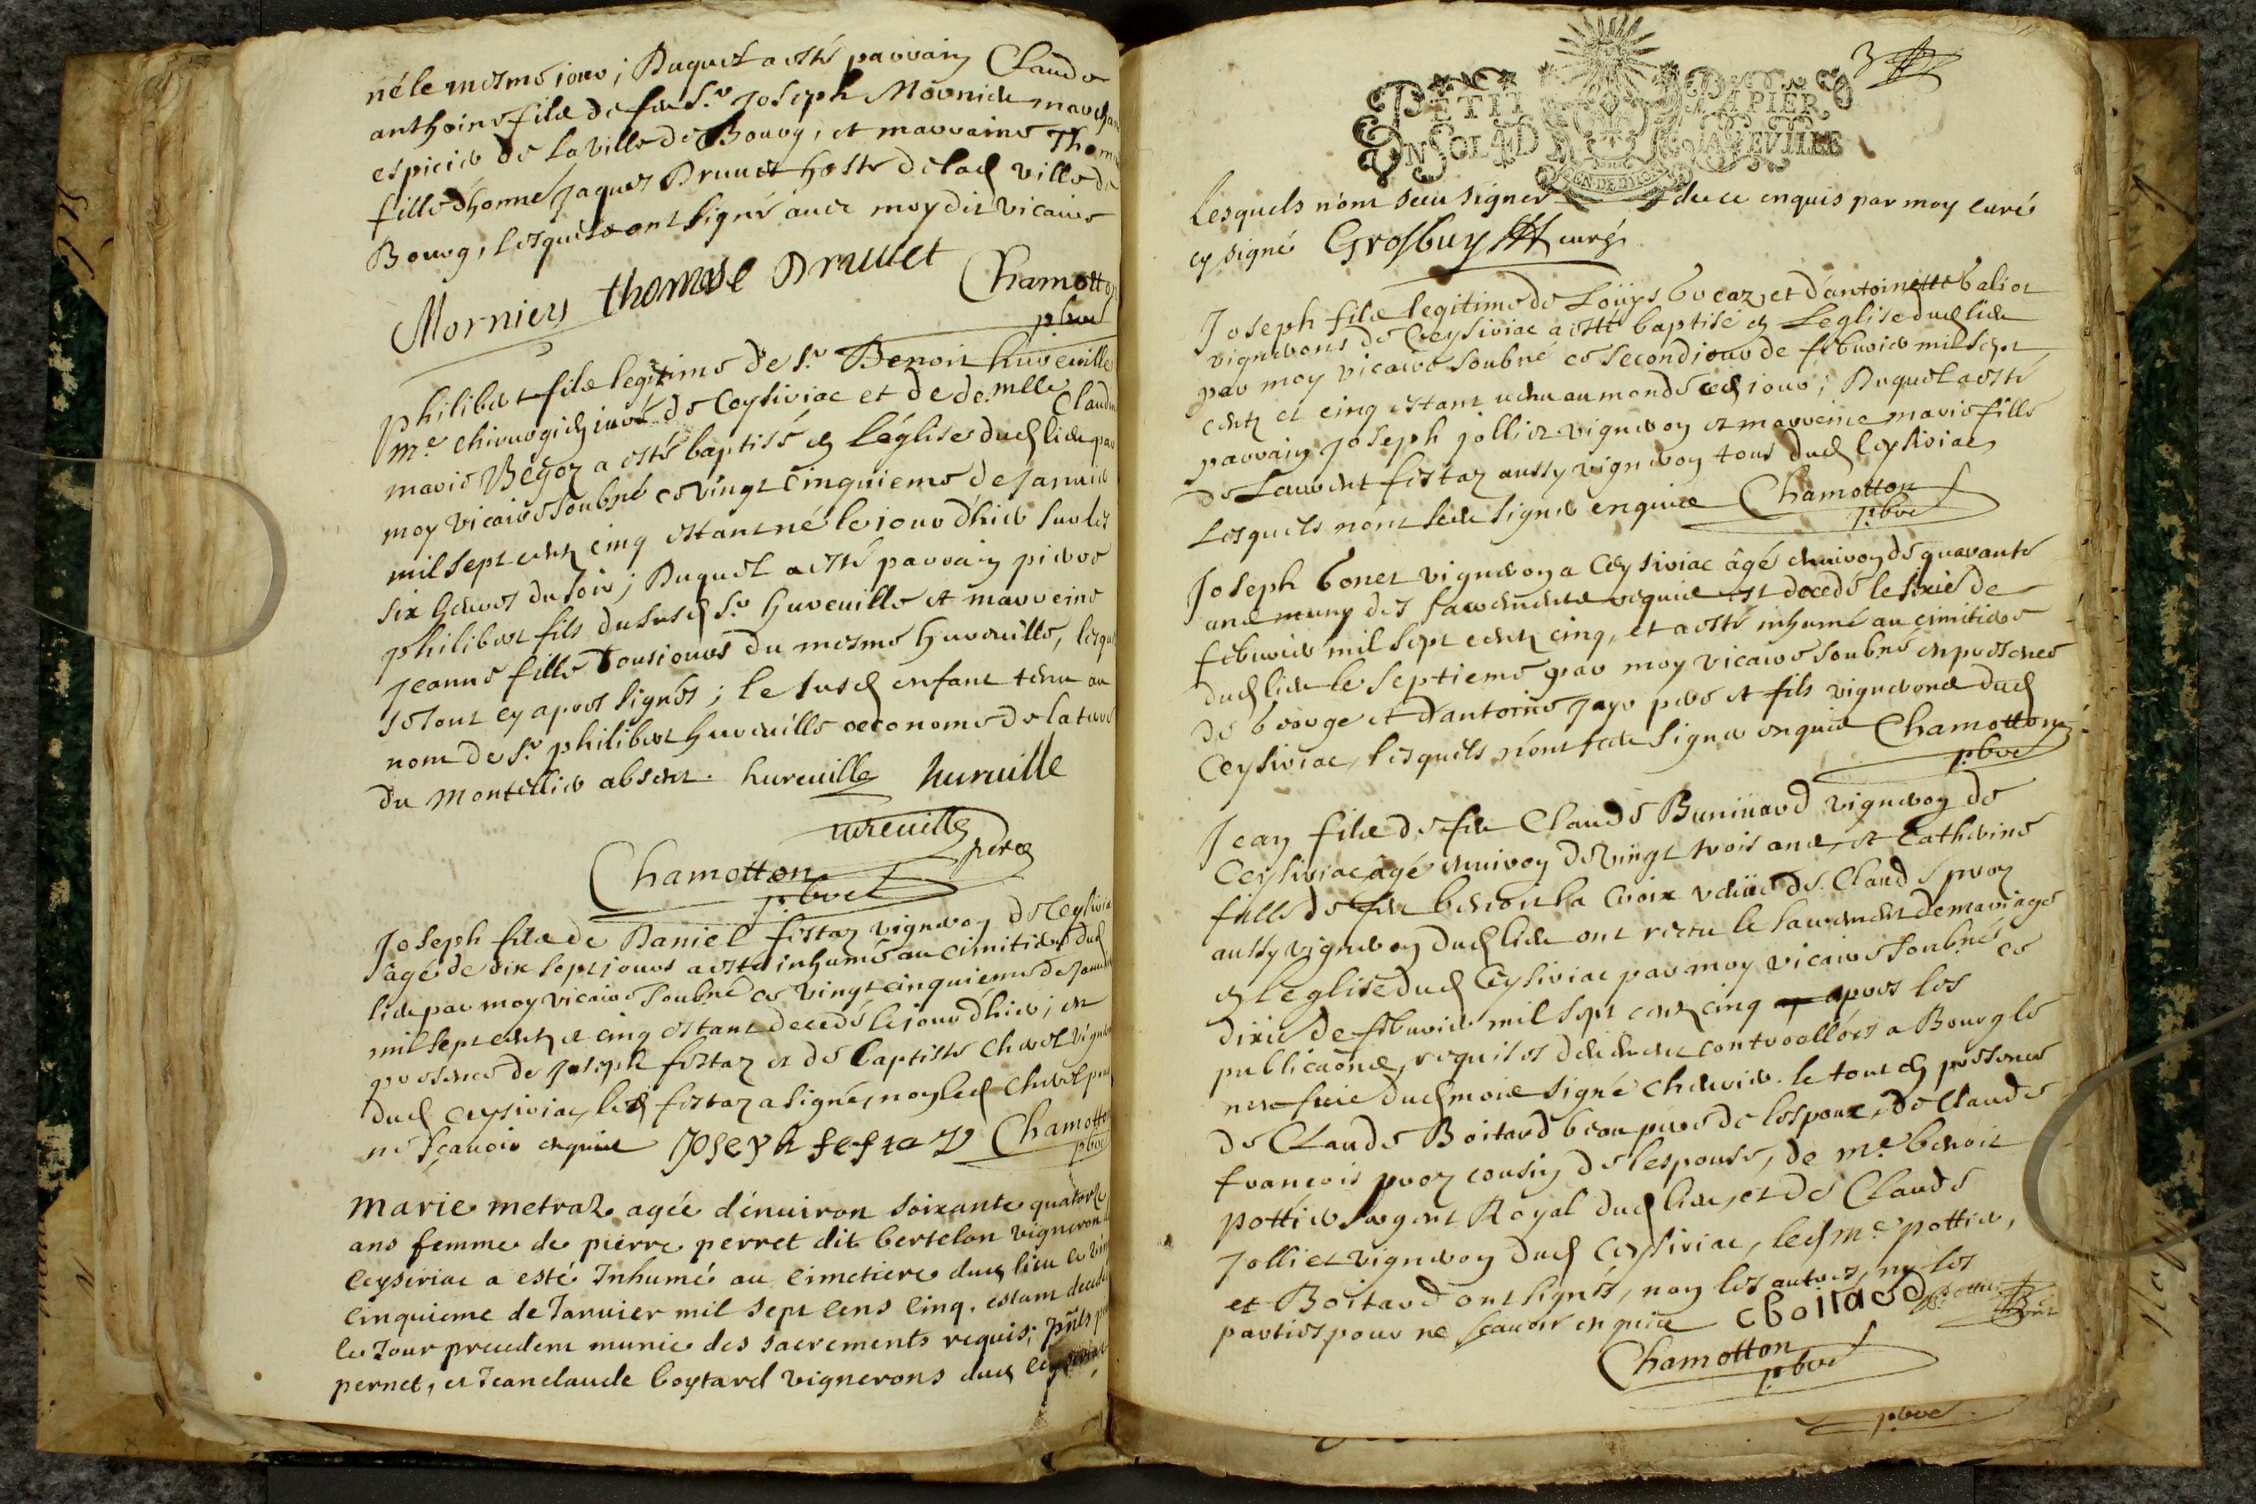 né le mesme jour; Duquel a esté parrain Claude
anthoine filz de feu Sr. Joseph Mornieu march
espicier de la ville de Bourg, et marraine Thom
fille d'honné. Jaques Druuet hoste de lad ville de
Bourg, lesquels ont signé auec moy dit vicaire
Morniery thomase Druuet Chamotton
pbre
Philibert filz legitime de Sr. Benoit hureuille
Me. chirurgien juré de Ceysiriac et de de.melle Claudi
marie Begoz a esté baptisé en l'église dud lieu par
moy vicaire soubsné ce vingt cinquieme de Januier
mil sept centz cinq estant né le jour d'hier sur les
six heures du soir; Duquel a esté parrain pierre
philibert fils du susd Sr hureuille et marreine
jeanne fille tousiours du mesme hureuille, lesqu
se sont cy apres signés; le susd enfant tenu au
nom de Sr. philibert hureuille oeconome de la cure
du montellier absent. hureuille hureuille
ureuille
pere
Chamotton
pbre
Joseph filz de Daniel festaz vigneron de Ceysiria
âgé de dix sept jours a esté inhumé au cimitiere dud
lieu par moy vicaire soubné ce vingt cinquieme de Januier
mil sept centz et cinq estant decedé le jour d'hier; en
presence de joseph festaz et de baptiste chevrel vigner
dud ceysiriac, led festaz a signé, non led chevrel pour
ne sçauoir enquis Joseph festaz Chamotton
pbre
Marie metraz agée d'énuiron soixante quatorze
ans femme de pierre perret dit bertelon vigneron
Ceyseriac a esté Inhumé au cimetiere dud lieu ce vin
cinquieme de Januier mil sept cens cinq. estant decede
le Jour precedent munie des sacrements requis; pnts p
pernet, et Jean claude boytard vignerons dud Ceyseriac
3
PETIT PAPIER
UN SOL 4 D LA FEVILLE
GEN. DE DIJON
Lesquels n'ont sceu signer de ce enquis par moy curé
cy signé Grosbuy curé
Joseph filz legitime de Loüys bocaz et d'antoinette baliot
vignerons de Ceysiriac a esté baptisé en Leglise dud lieu
par moy vicaire soubné ce second jour de feburier mil sept
centz et cinq estant uenu au monde ced jour; Duquel a esté
parrain joseph jollier vigneron et marreine marie fille
de Laurent festaz aussy vigneron tous dud Ceysiriac,
Lesquels n'ont sceu signer enquis Chamotton
pbre
Joseph bonet vigneron a Ceysiriac âgé enuiron de quarante
ans muny des sacrements requis est decedé le sixie de
feburier mil sept centz cinq, et a esté inhumé au cimitiere
dud lieu le septieme par moy vicaire soubné en presence
de george et d'antoine jayr pere et fils vignerons dud
Ceysiriac, lesquels n'ont sceu signer enquis Chamotton
pbre
Jean filz de feu Claude Buniuard vigneron de
Ceysiriac âgé enuiron de vingt trois ans, et Catherine
fille de feu benoit la croix veüue de Claude proz
aussy vigneron dud lieu ont receu le sacrement de mariage
en l'eglise dud Ceysiriac par moy vicaire soubné ce
dixie de feburier mil sept centz cinq apres les
publicaons requises deuement controllées a Bourg le
neufuie dud mois signé cheurier. le tout en presence
de Claude Boitard beau pere de l'espoux, de Claude
francois proz cousin de l'espouse, de me. benoit
pottier sergent Royal dud lieu, et de Claude
jollier vigneron dud Ceysiriac, led me pottier,
et Boitard ont signés, non les autres, ny les
parties pour ne scauoir enquis CBoitard
Chamotton
pbre
pbre